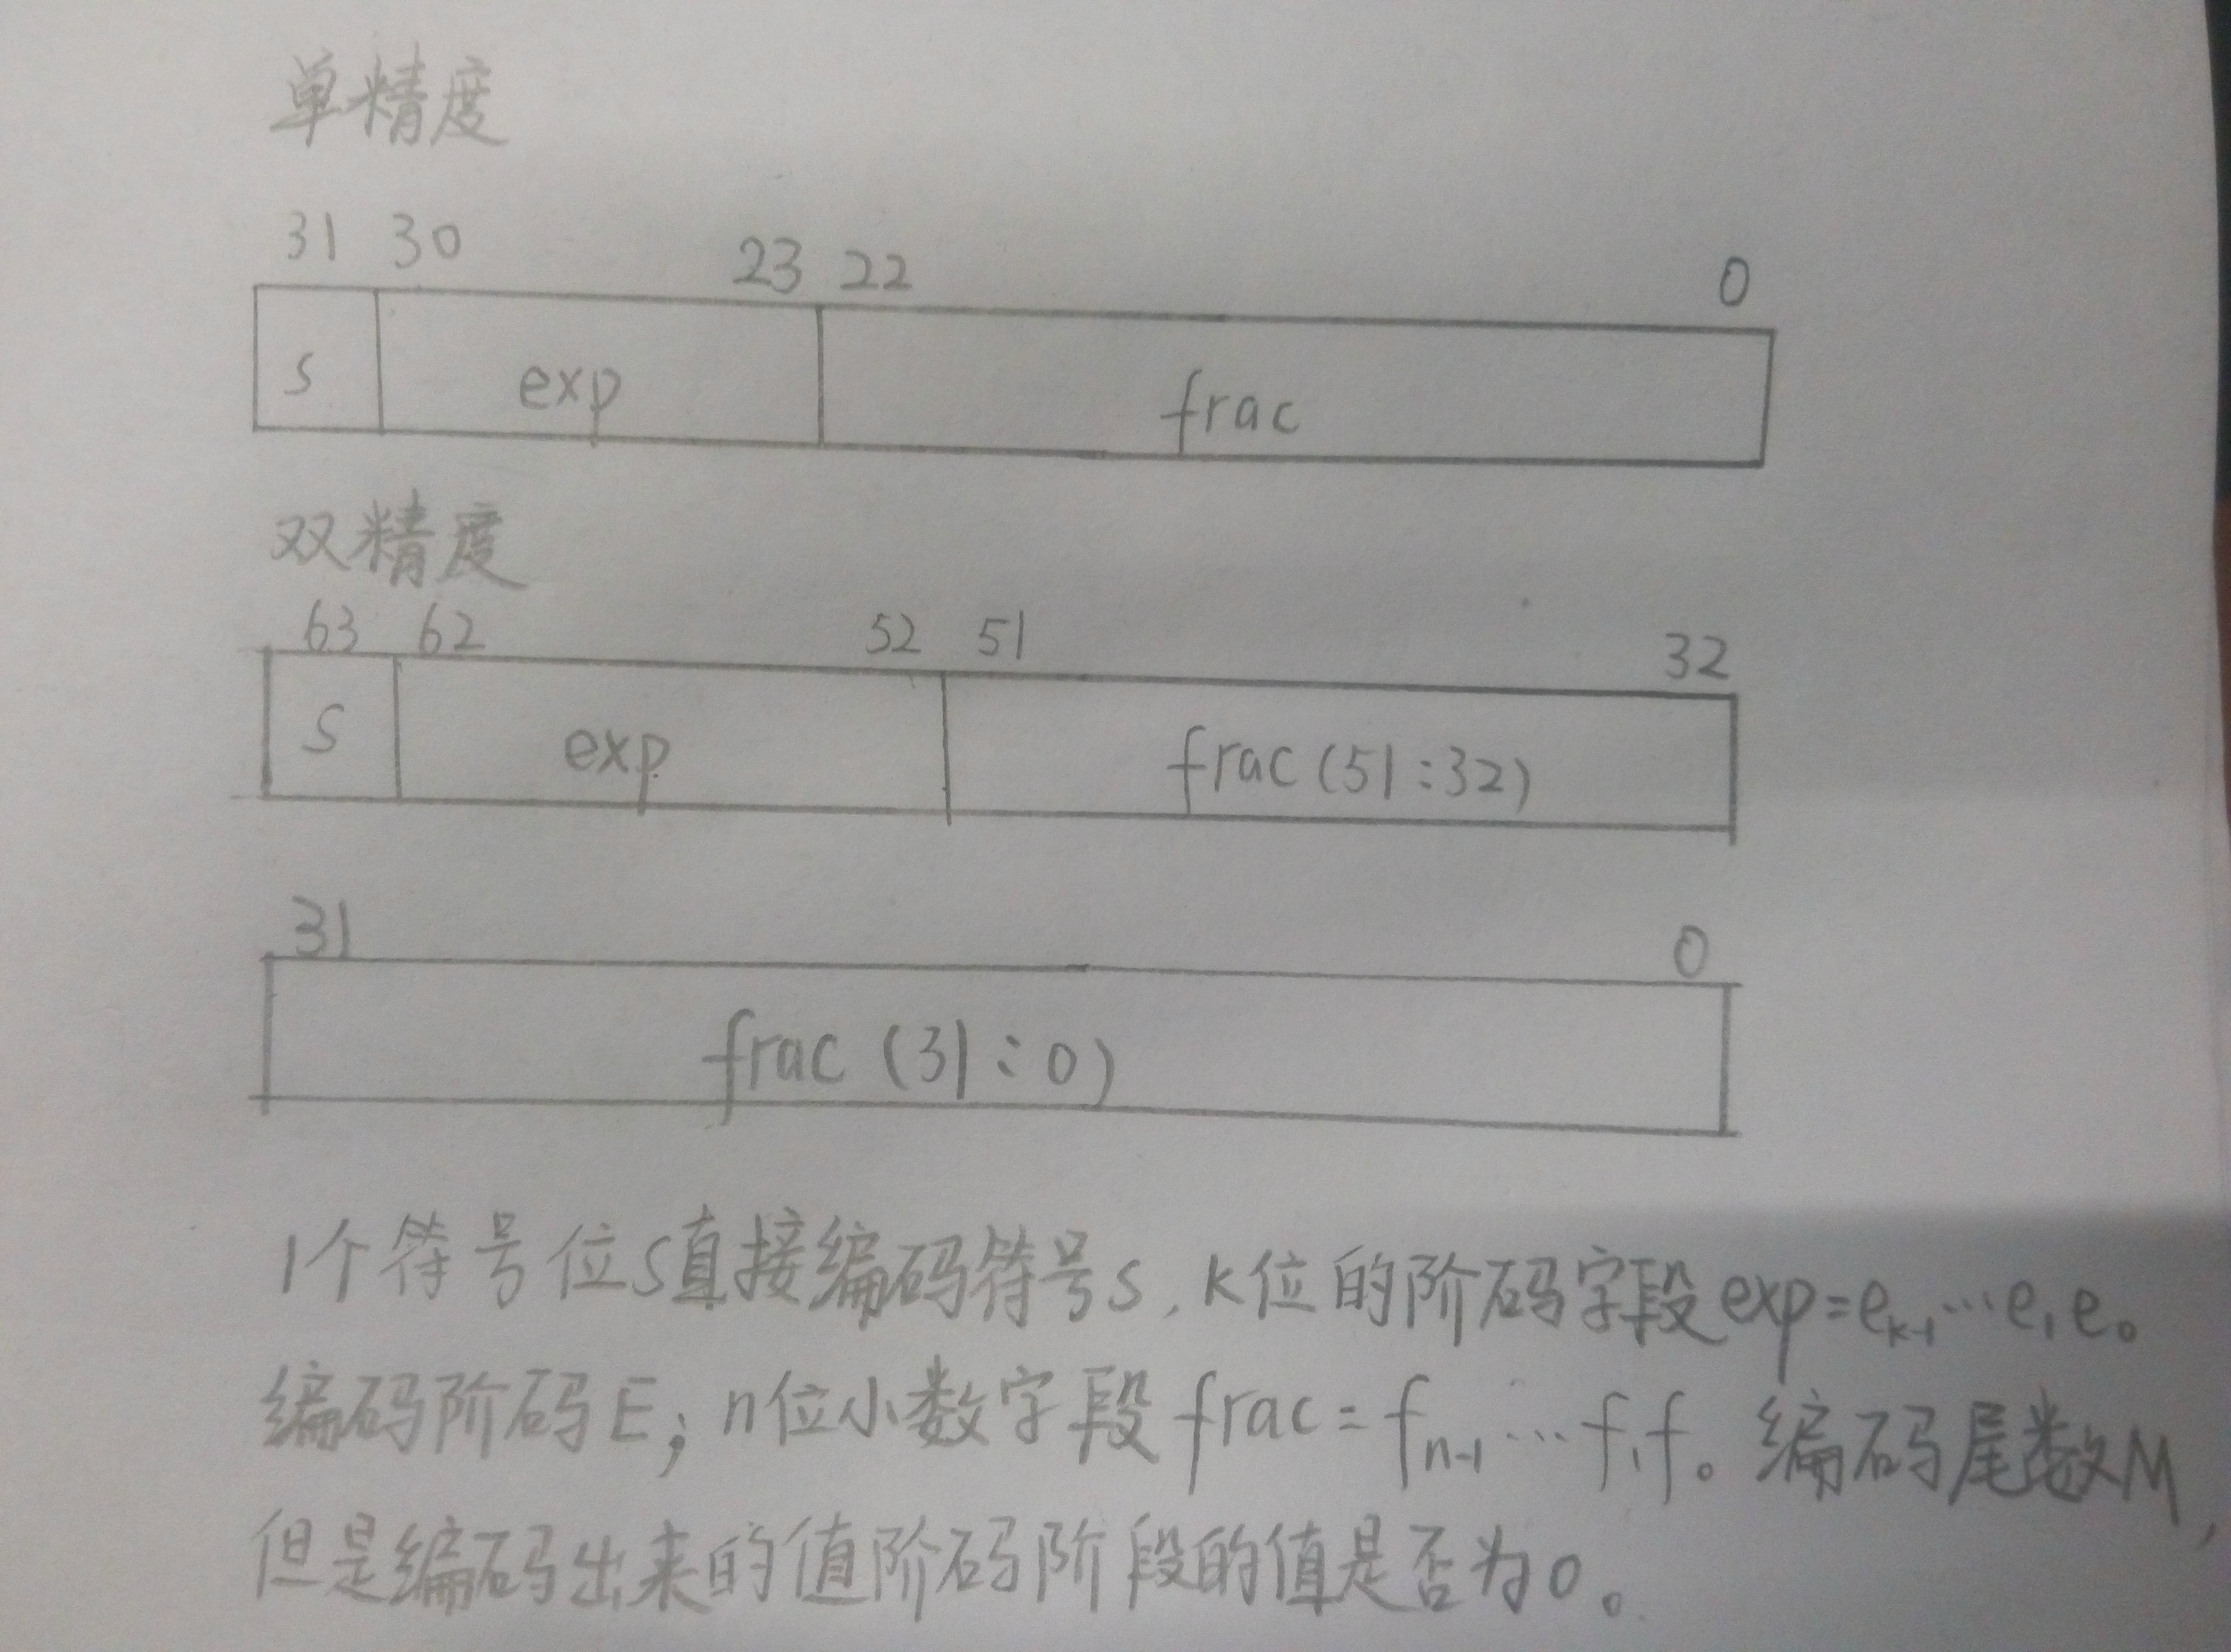 单精度
31 30 23 22 0
s exp frac
双精度
63 62 52 51 32
s exp frac(51:32)
31 0
frac (31:0)
1个符号位s直接编码符号s,k位的阶码字段exp=eₖ₋₁…e₁e₀
编码阶码E;n位小数字段frac=fₙ₋₁…f₁f₀编码尾数M,
但是编码出来的值阶码阶段的值是否为0。